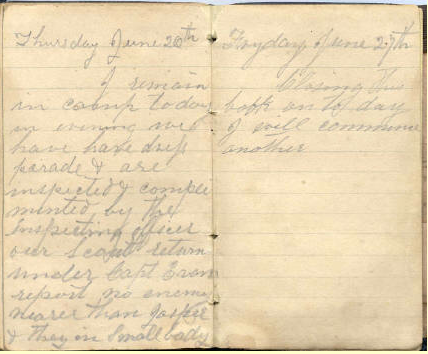 Thursday June 26th
I remain
in camp today
in evening we
have have dress
parade & are
inspected & compli
minted by the
Inspecting officer
our Scout return
under Capt Evans
report no enemy
nearer than Jasper
& they in Small body
Fryday June 27th
Closing this
book on to day
I will commence
another